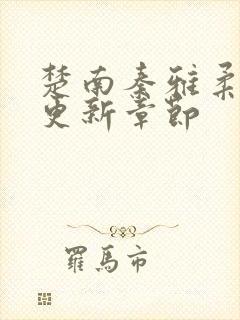 楚南秦雅柔
更新章節
羅馬市